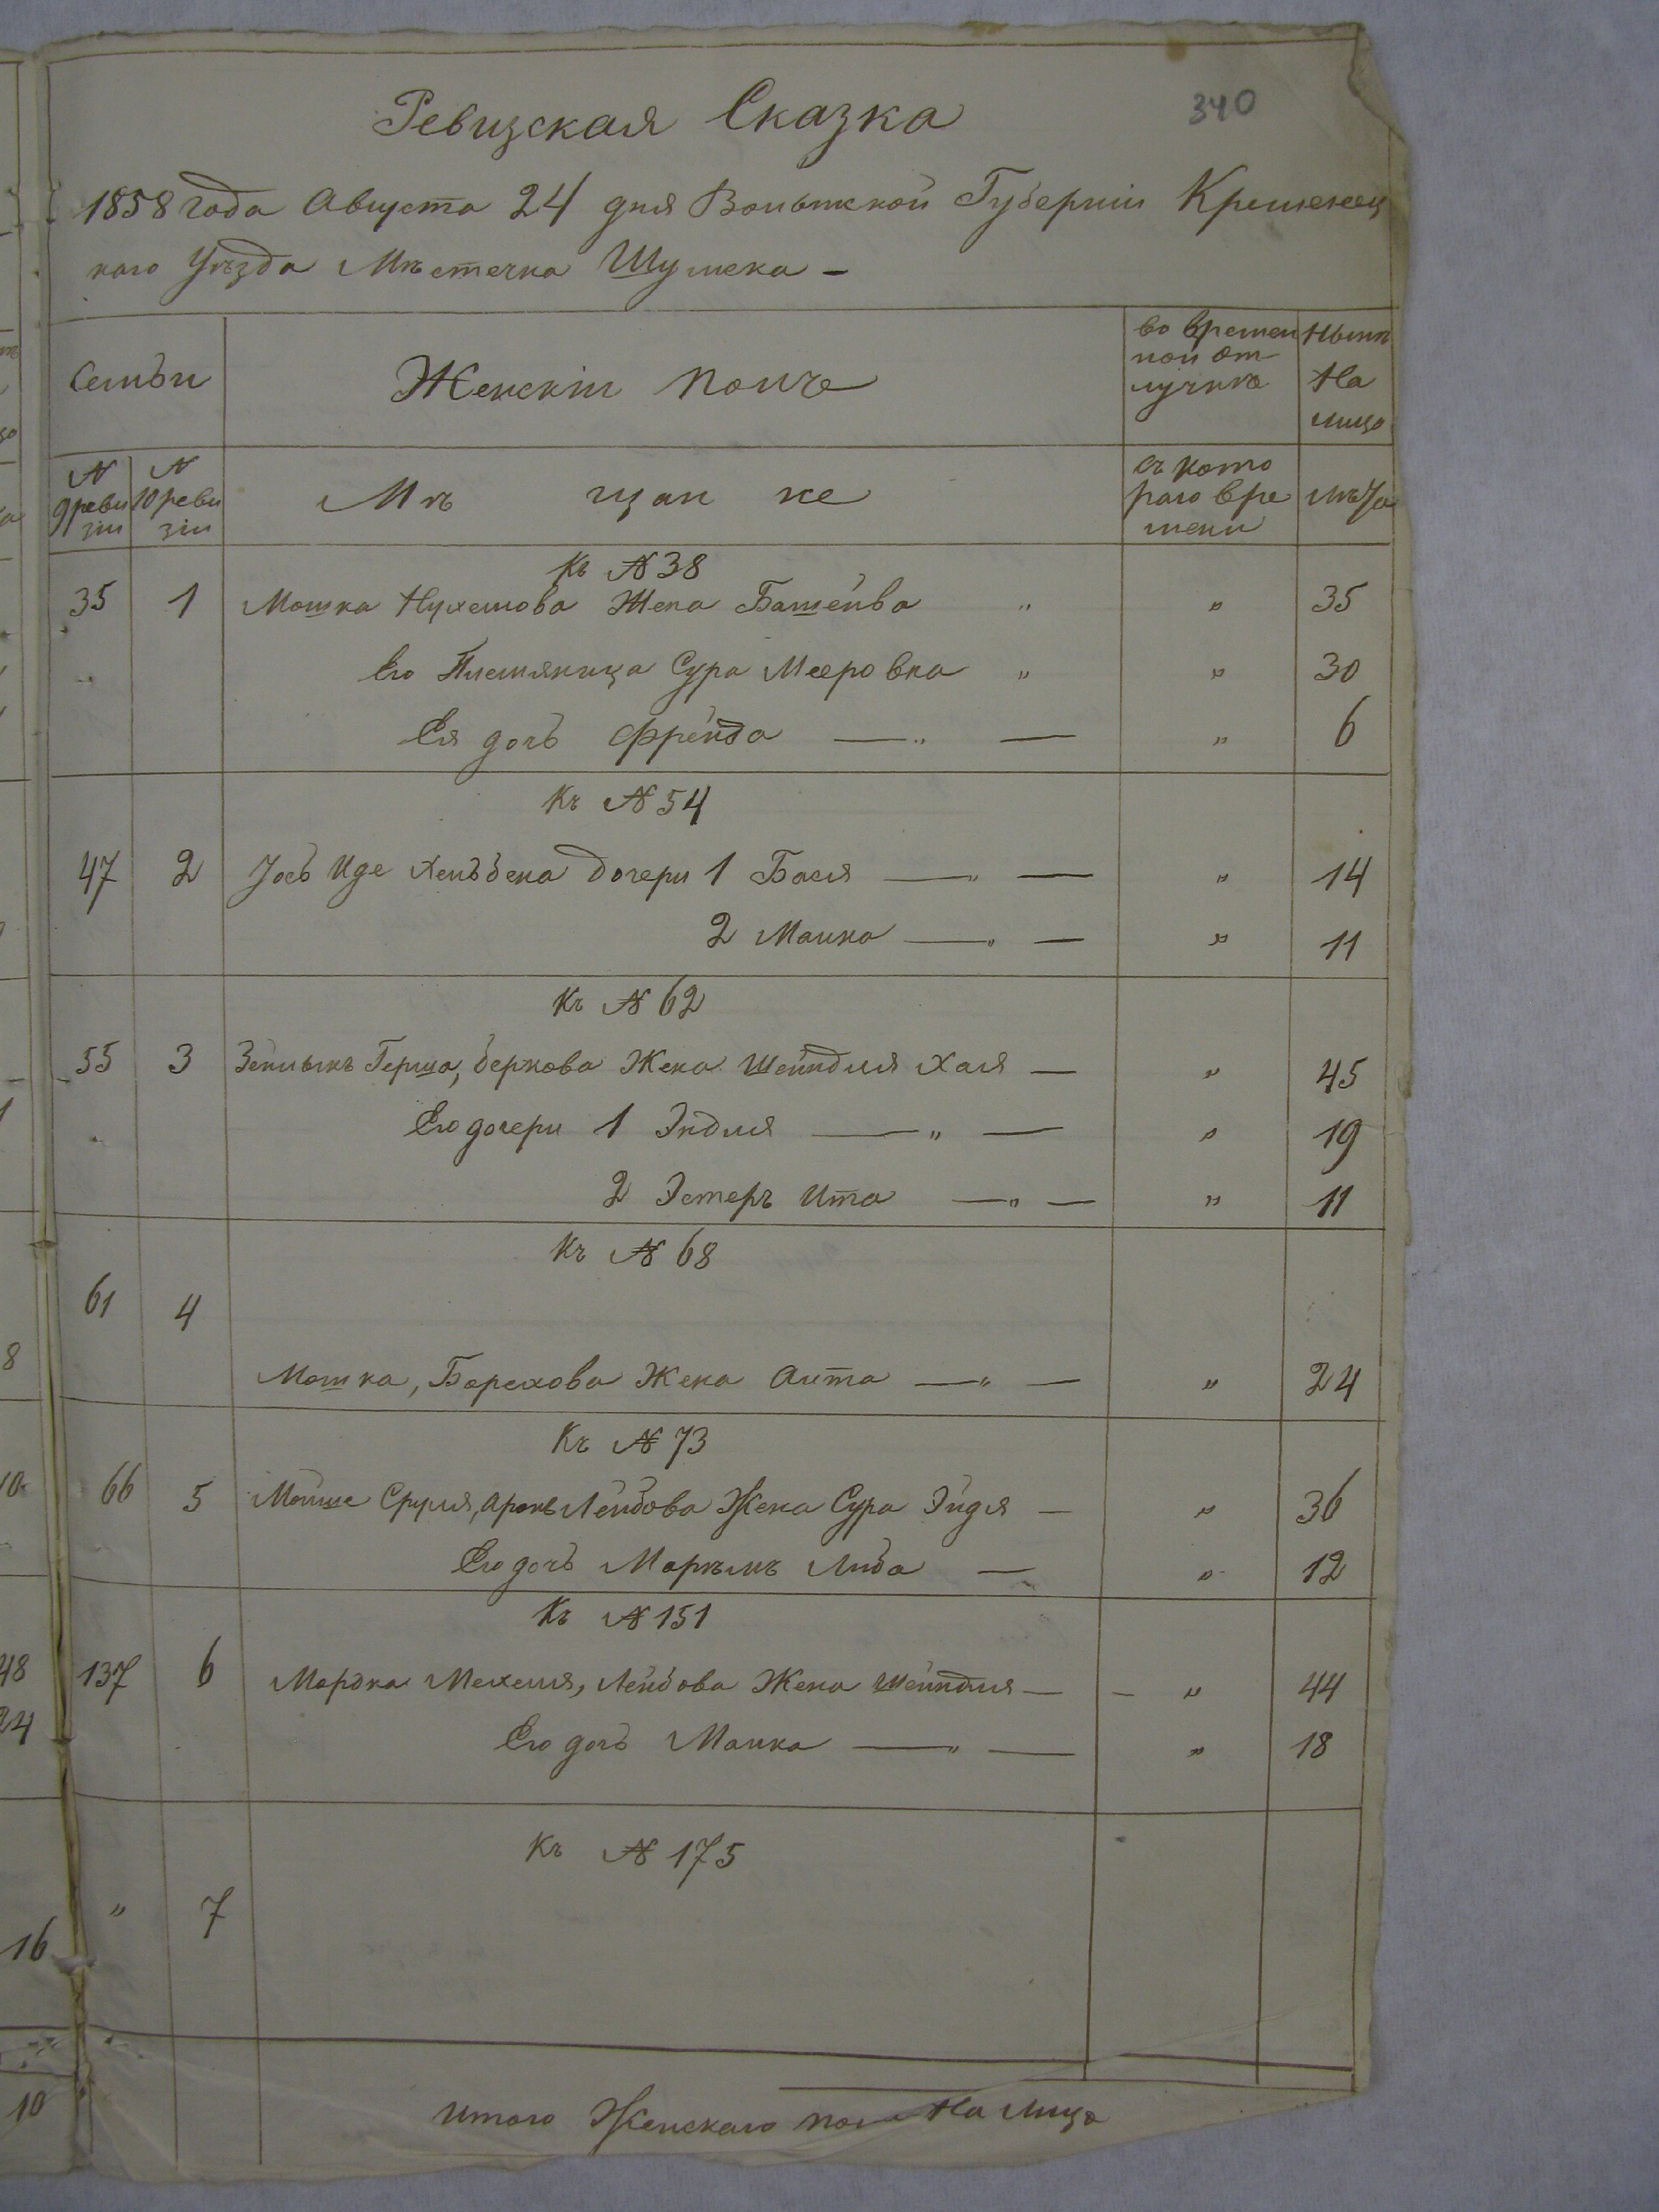 Ревизская Сказка 340
1858 года Августа 24 дня Волынской Губернiи Кременец
каго Уѣзда Мѣстечка Шумска –
Семьи
Женскiй Полъ
во времен
ной от
лучкѣ
Нынѣ
На
лицо
N
9 реви
зiи
N
10 реви
зiи
Мѣ щан ке
съ кото
раго вре
мени
Лѣта
Къ № 38
35 1 Мошка Нухемова Жена Башейва " " 35
Его Племяница Сура Мееровна " " 30
Ея дочь Фрейда — " — " 6
Къ № 54
47 2 Іось Иде Хельбена дочери 1 Бася — " — " 14
2 Малка — " — " 11
Къ № 62
55 3 Зельмынъ Герша, Беркова Жена Шейндля Хая — " 45
Его дочери 1 Эндля — " — " 19
2 Эстеръ Ита — " — " 11
Къ № 68
61 4
Мошка, Борехова Жена Аита — " — " 24
Къ № 73
66 5 Мойше Сруля, Аронъ Лейбова Жена Сура Эйдя — " 36
Его дочь Марьямъ Либа — " 12
Къ № 151
137 6 Мордка Мехеля, Лейбова Жена Шейндля — – " 44
Его дочь Малка — " — " 18
Къ № 175
" 7
Итого Женскаго пола На Лицо
8
48
24
16
10